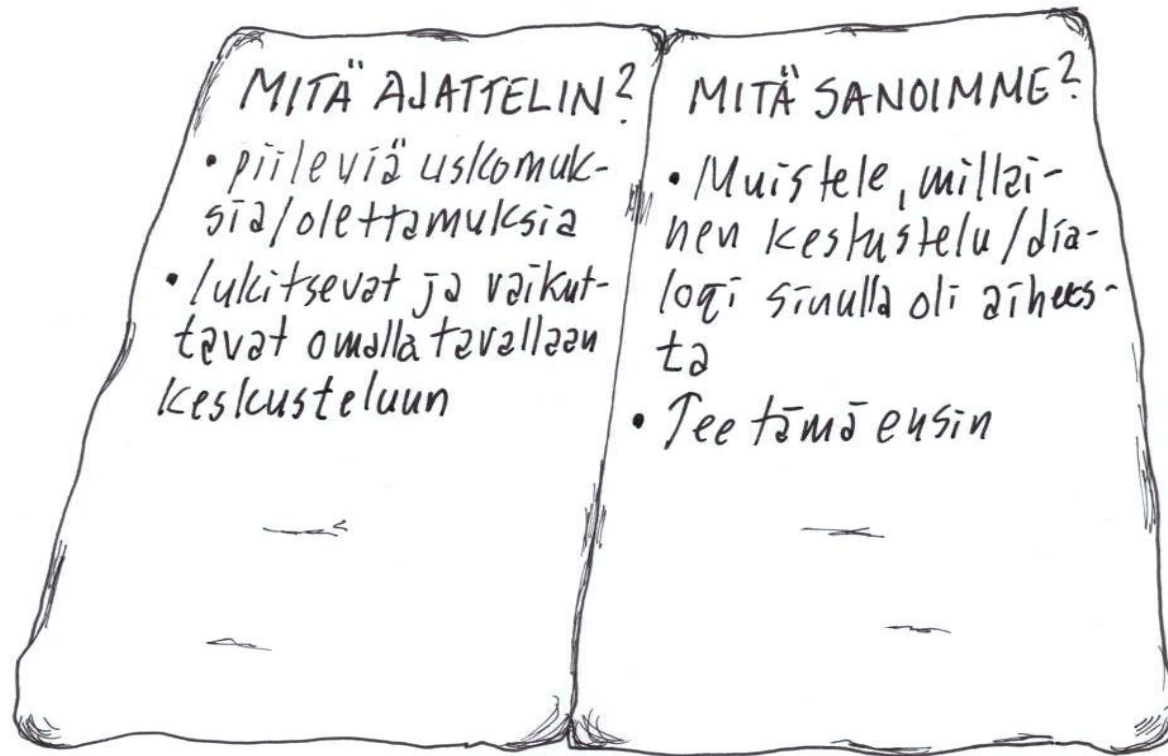 MITÄ AJATTELIN?
• piileviä uskomuk-
sia/olettamuksia
• lukitsevat ja vaikut-
tavat omalla tavallaan
keskusteluun
MITÄ SANOIMME?
• Muistele, millai-
nen keskustelu/dia-
logi sinulla oli aihees-
ta
• Tee tämä ensin